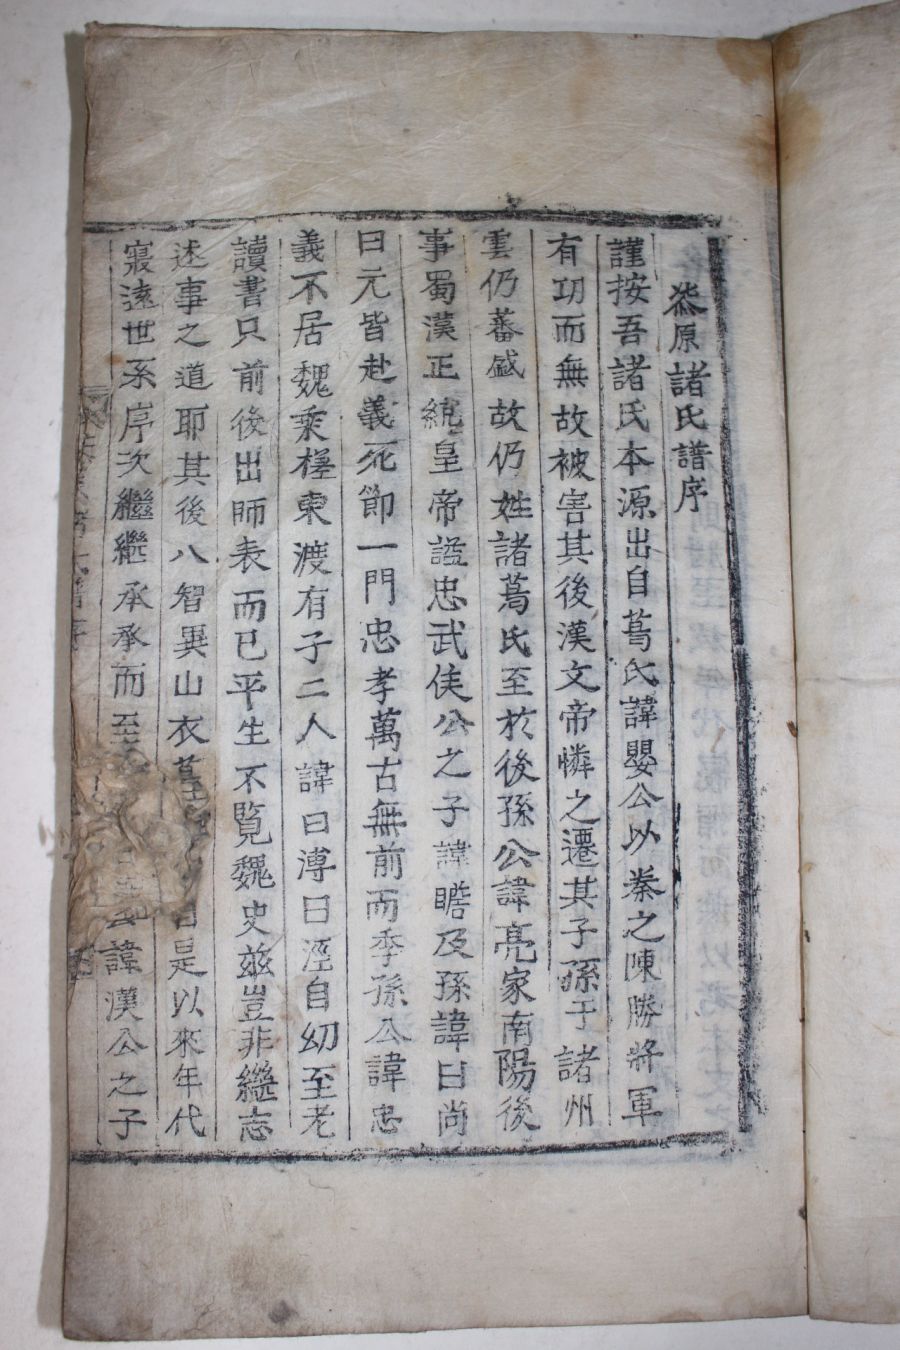 柒原諸氏譜序
謹按吾諸氏本源出自葛氏諱嬰公以秦之陳勝將軍
有功而無故被害其後漢文帝憐之遷其子孫于諸州
雲仍蕃盛故仍姓諸葛氏至於後孫公諱亮家南陽後
事蜀漢正統皇帝諡忠武侯公之子諱瞻及孫諱曰尚
曰元皆赴義死節一門忠孝萬古無前而季孫公諱忠
義不居魏乘槎東渡有子二人諱曰溥曰溼自幼至老
讀書只前後出師表而已平生不覧魏史玆豈非繼志
述事之道耶其後八智異山衣是以來年代
寢遠世系序次繼繼承承而至諱漢公之子